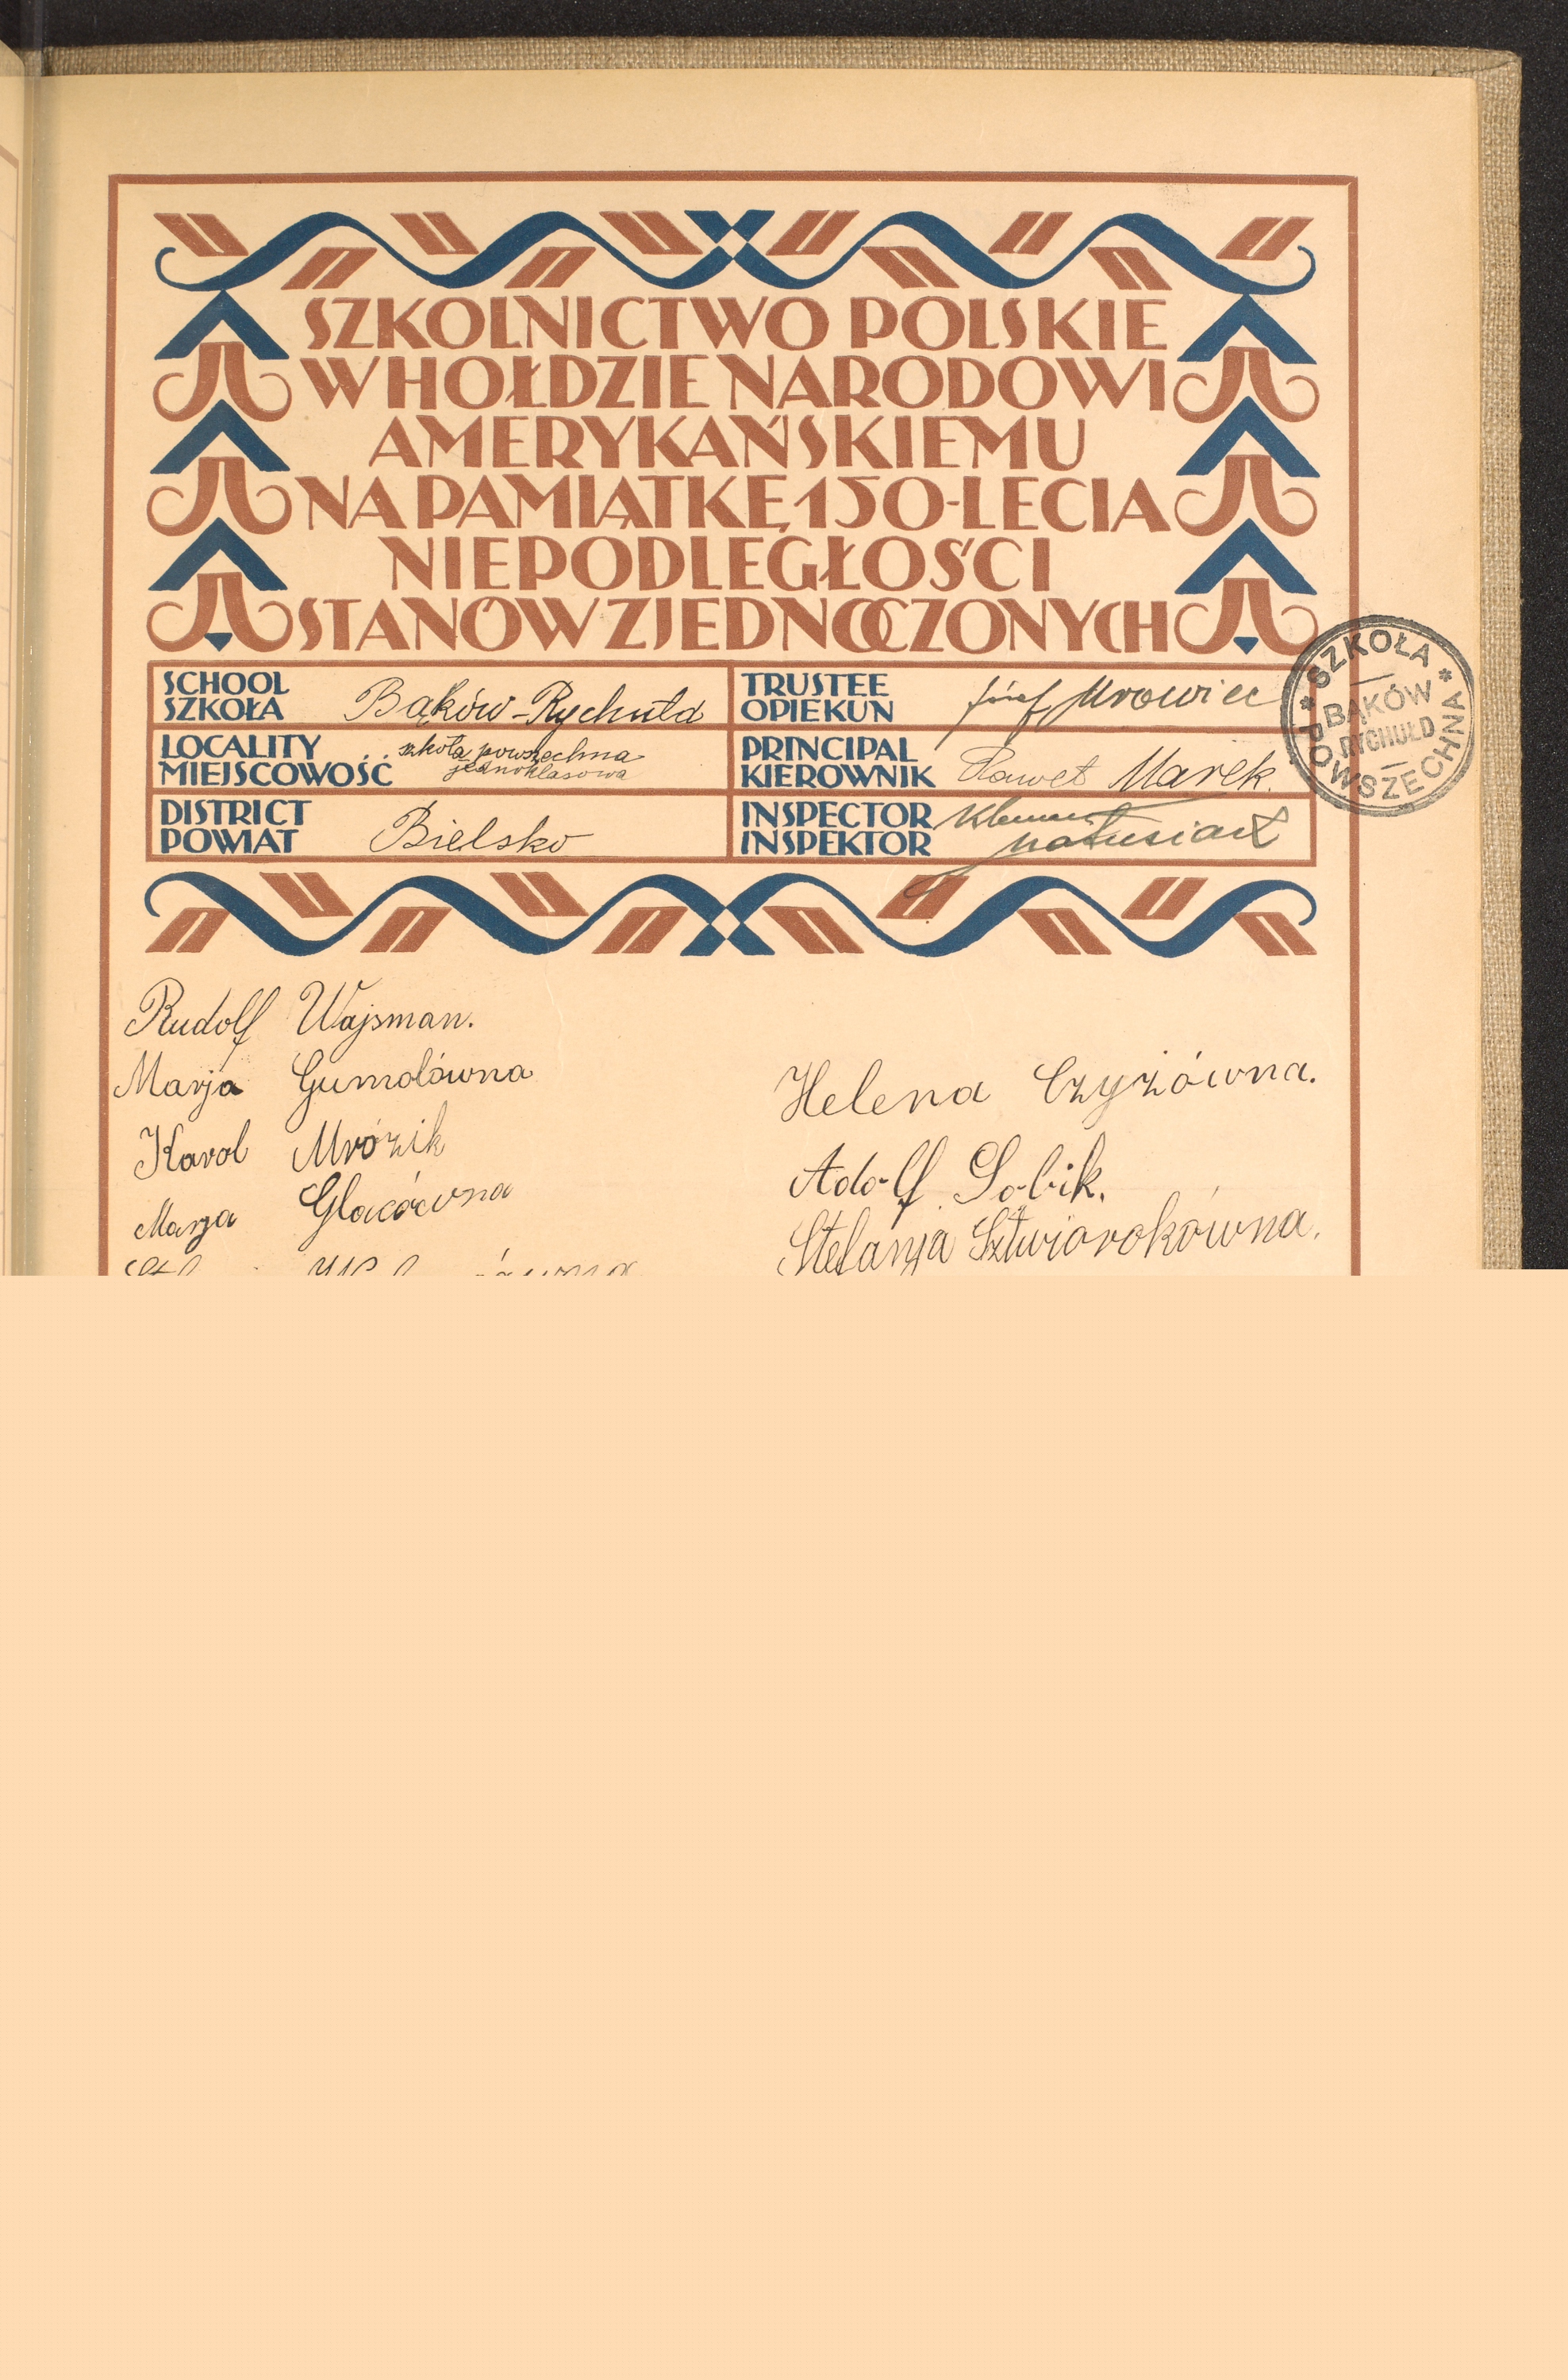 SZKOLNICTWO POLSKIE
W HOŁDZIE NARODOWI
AMERYKAŃSKIEMU
NA PAMIĄTKĘ 150-LECIA
NIEPODLEGŁOŚCI
STANÓW ZJEDNOCZONYCH
SCHOOL
SZKOŁA
Bąków-Rychułd
LOCALITY
MIEJSCOWOŚĆ
szkoła powszechna
jednoklasowa
DISTRICT
POWIAT
Bielsko
TRUSTEE
OPIEKUN
Józef Mrowiec
PRINCIPAL
KIEROWNIK
Paweł Marek.
INSPECTOR
INSPEKTOR
Klemens
Matusiak
SZKOŁA
POWSZECHNA
BĄKÓW
RYCHUŁD
Rudolf Wajsman.
Marja Gumolówna
Karol Mrózik
Marja Glacówna
Helena Czyżówna.
Adolf Sobik.
Stefanja Sztwiorokówna.